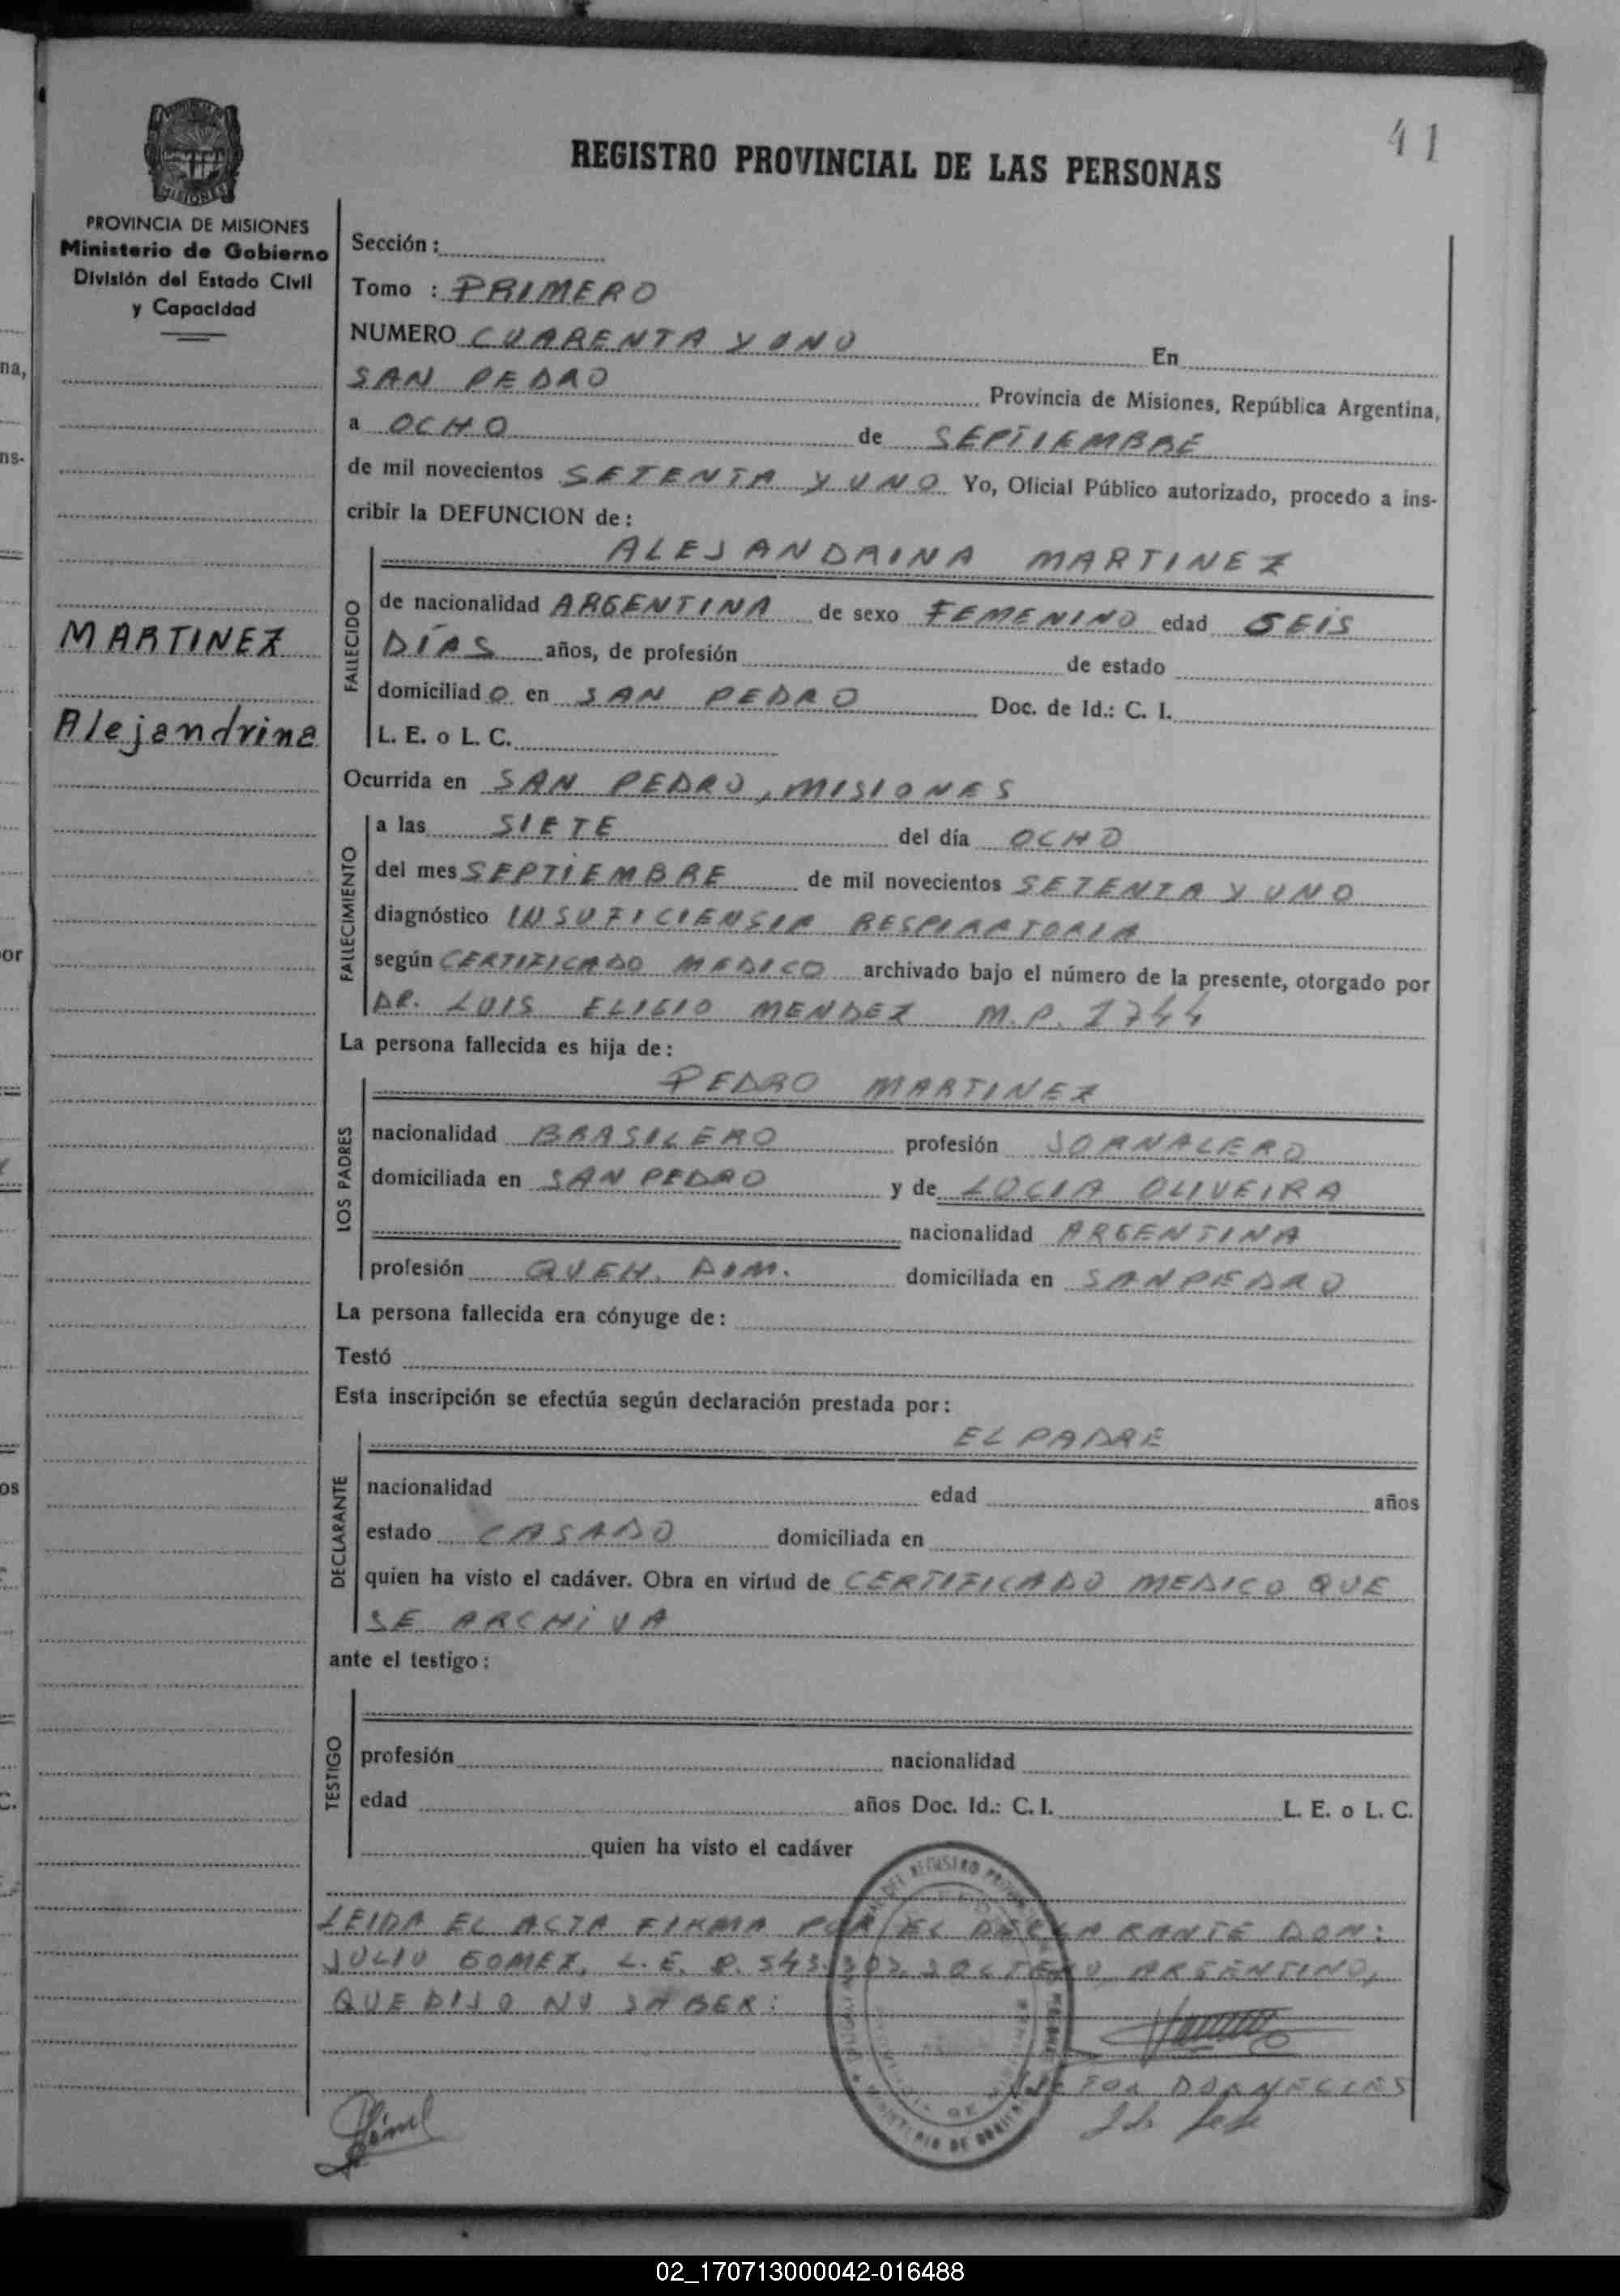 41
REGISTRO PROVINCIAL DE LAS PERSONAS
MISIONES
PROVINCIA DE MISIONES
Ministerio de Gobierno
División del Estado Civil
y Capacidad
MARTINEZ
Alejandrina
Sección:
Tomo : PRIMERO
NUMERO CUARENTA Y UNO En
SAN PEDRO Provincia de Misiones, República Argentina,
a OCHO de SEPTIEMBRE
de mil novecientos SETENTA Y UNO Yo, Oficial Público autorizado, procedo a ins-
cribir la DEFUNCION de:
ALEJANDRINA MARTINEZ
FALLECIDO
de nacionalidad ARGENTINA de sexo FEMENINO edad SEIS
DÍAS años, de profesión de estado
domiciliado en SAN PEDRO Doc. de Id.: C. I.
L. E. o L. C.
Ocurrida en SAN PEDRO, MISIONES
FALLECIMIENTO
a las SIETE del día OCHO
del mes SEPTIEMBRE de mil novecientos SETENTA Y UNO
diagnóstico INSUFICIENSIA RESPIRATORIA
según CERTIFICADO MEDICO archivado bajo el número de la presente, otorgado por
DR. LUIS ELIGIO MENDEZ M.P. 1744
La persona fallecida es hija de:
PEDRO MARTINEZ
LOS PADRES
nacionalidad BRASILERO profesión JORNALERO
domiciliada en SAN PEDRO y de LUCIA OLIVEIRA
nacionalidad ARGENTINA
profesión QUEH. DOM. domiciliada en SAN PEDRO
La persona fallecida era cónyuge de:
Testó
Esta inscripción se efectúa según declaración prestada por:
EL PADRE
DECLARANTE
nacionalidad edad años
estado CASADO domiciliada en
quien ha visto el cadáver. Obra en virtud de CERTIFICADO MEDICO QUE
SE ARCHIVA
ante el testigo:
TESTIGO
profesión nacionalidad
edad años Doc. Id.: C. I. L. E. o L. C.
quien ha visto el cadáver
LEIDA EL ACTA FIRMA POR EL DECLARANTE DON:
JULIO GOMEZ, L.E. 8.543.303 SOLTERO, ARGENTINO,
QUE DIJO NO SABER:
DORNELLES
02_170713000042-016488